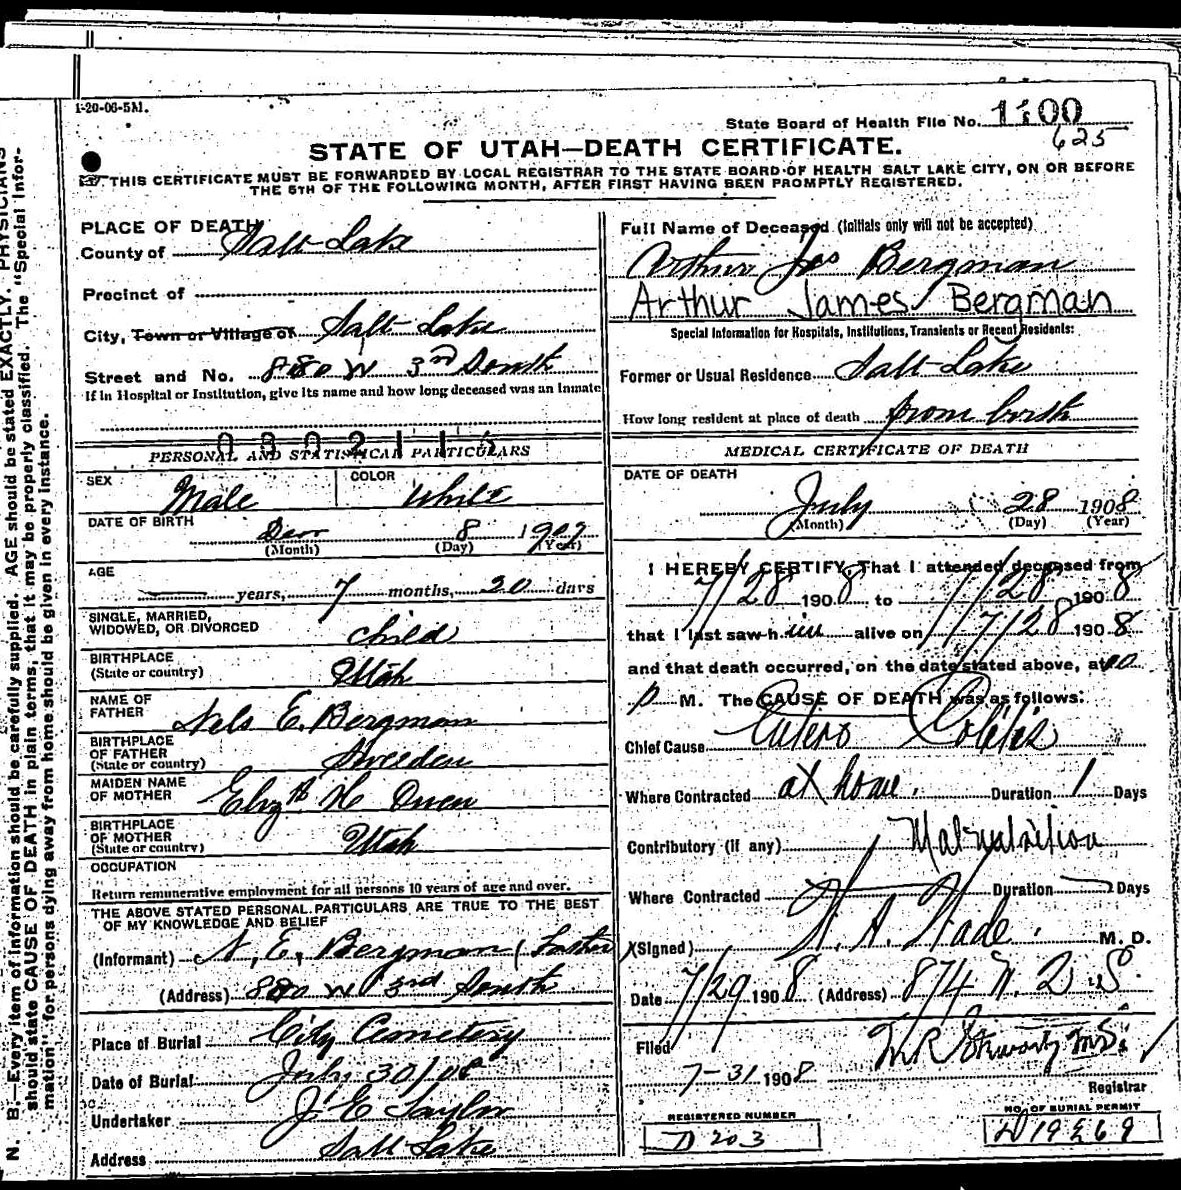 1-20-06-5M.
State Board of Health File No. 1100
625
STATE OF UTAH—DEATH CERTIFICATE.
THIS CERTIFICATE MUST BE FORWARDED BY LOCAL REGISTRAR TO THE STATE BOARD OF HEALTH SALT LAKE CITY, ON OR BEFORE
THE 5TH OF THE FOLLOWING MONTH, AFTER FIRST HAVING BEEN PROMPTLY REGISTERED.
PLACE OF DEATH
County of Salt Lake
Precinct of
City, Town or Village of Salt Lake
Street and No. 880 W 3rd South
If in Hospital or Institution, give its name and how long deceased was an Inmate
PERSONAL AND STATISTICAL PARTICULARS
SEX Male COLOR White
DATE OF BIRTH Dec 8 1907
(Month) (Day) (Year)
AGE years, 7 months, 20 days
SINGLE, MARRIED,
WIDOWED, OR DIVORCED child
BIRTHPLACE
(State or country) Utah
NAME OF
FATHER Nels E. Bergman
BIRTHPLACE
OF FATHER
(State or country) Sweeden
MAIDEN NAME
OF MOTHER Elizth H Owen
BIRTHPLACE
OF MOTHER
(State or country) Utah
OCCUPATION
Return remunerative employment for all persons 10 years of age and over.
THE ABOVE STATED PERSONAL PARTICULARS ARE TRUE TO THE BEST
OF MY KNOWLEDGE AND BELIEF
(Informant) N, E, Bergman (Father
(Address) 880 W 3rd South
Place of Burial City Cemetery
Date of Burial July 30/08
Undertaker J. E Taylor
Address Salt Lake
Full Name of Deceased (Initials only will not be accepted)
Arthur Jas Bergman
Arthur James Bergman
Special Information for Hospitals, Institutions, Transients or Recent Residents:
Former or Usual Residence Salt Lake
How long resident at place of death from birth
MEDICAL CERTIFICATE OF DEATH
DATE OF DEATH
July 28 1908
(Month) (Day) (Year)
I HEREBY CERTIFY, That I attended deceased from
7/28 1908 to 7/28 1908
that I last saw him alive on 7/28 1908
and that death occurred, on the date stated above, at 10
p M. The CAUSE OF DEATH was as follows:
Chief Cause Entero Colitis
Where Contracted at home. Duration 1 Days
Contributory (if any) Malnutrition
Where Contracted Duration Days
(Signed) H. A. Wade. M. D.
Date 7/29 1908 (Address) 874 W. 2 S
Filed
7-31 1908
Registrar
REGISTERED NUMBER
D 203
NO. OF BURIAL PERMIT
D 19269
N. B.—Every item of information should be carefully supplied. AGE should be stated EXACTLY. PHYSICIANS
should state CAUSE OF DEATH in plain terms, that it may be properly classified. The "Special Infor-
mation" for persons dying away from home should be given in every instance.